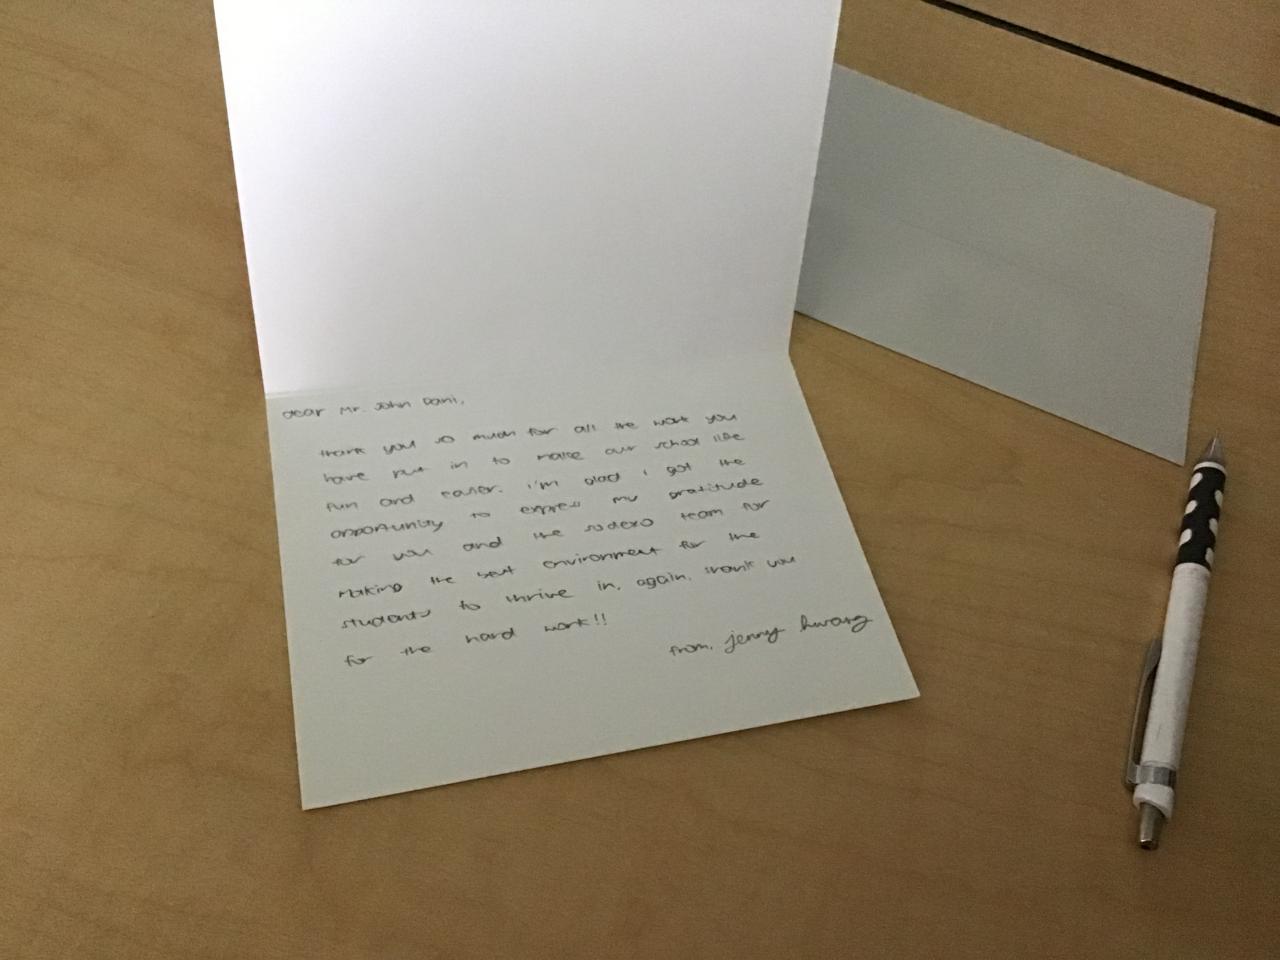 dear Mr. John Dani,
thank you so much for all the work you
have put in to make our school life
fun and easier. i'm glad i got the
opportunity to express my gratitude
for you and the sodexo team for
making the best environment for the
students to thrive in. again, thank you
for the hard work!!
from. jenny hwang